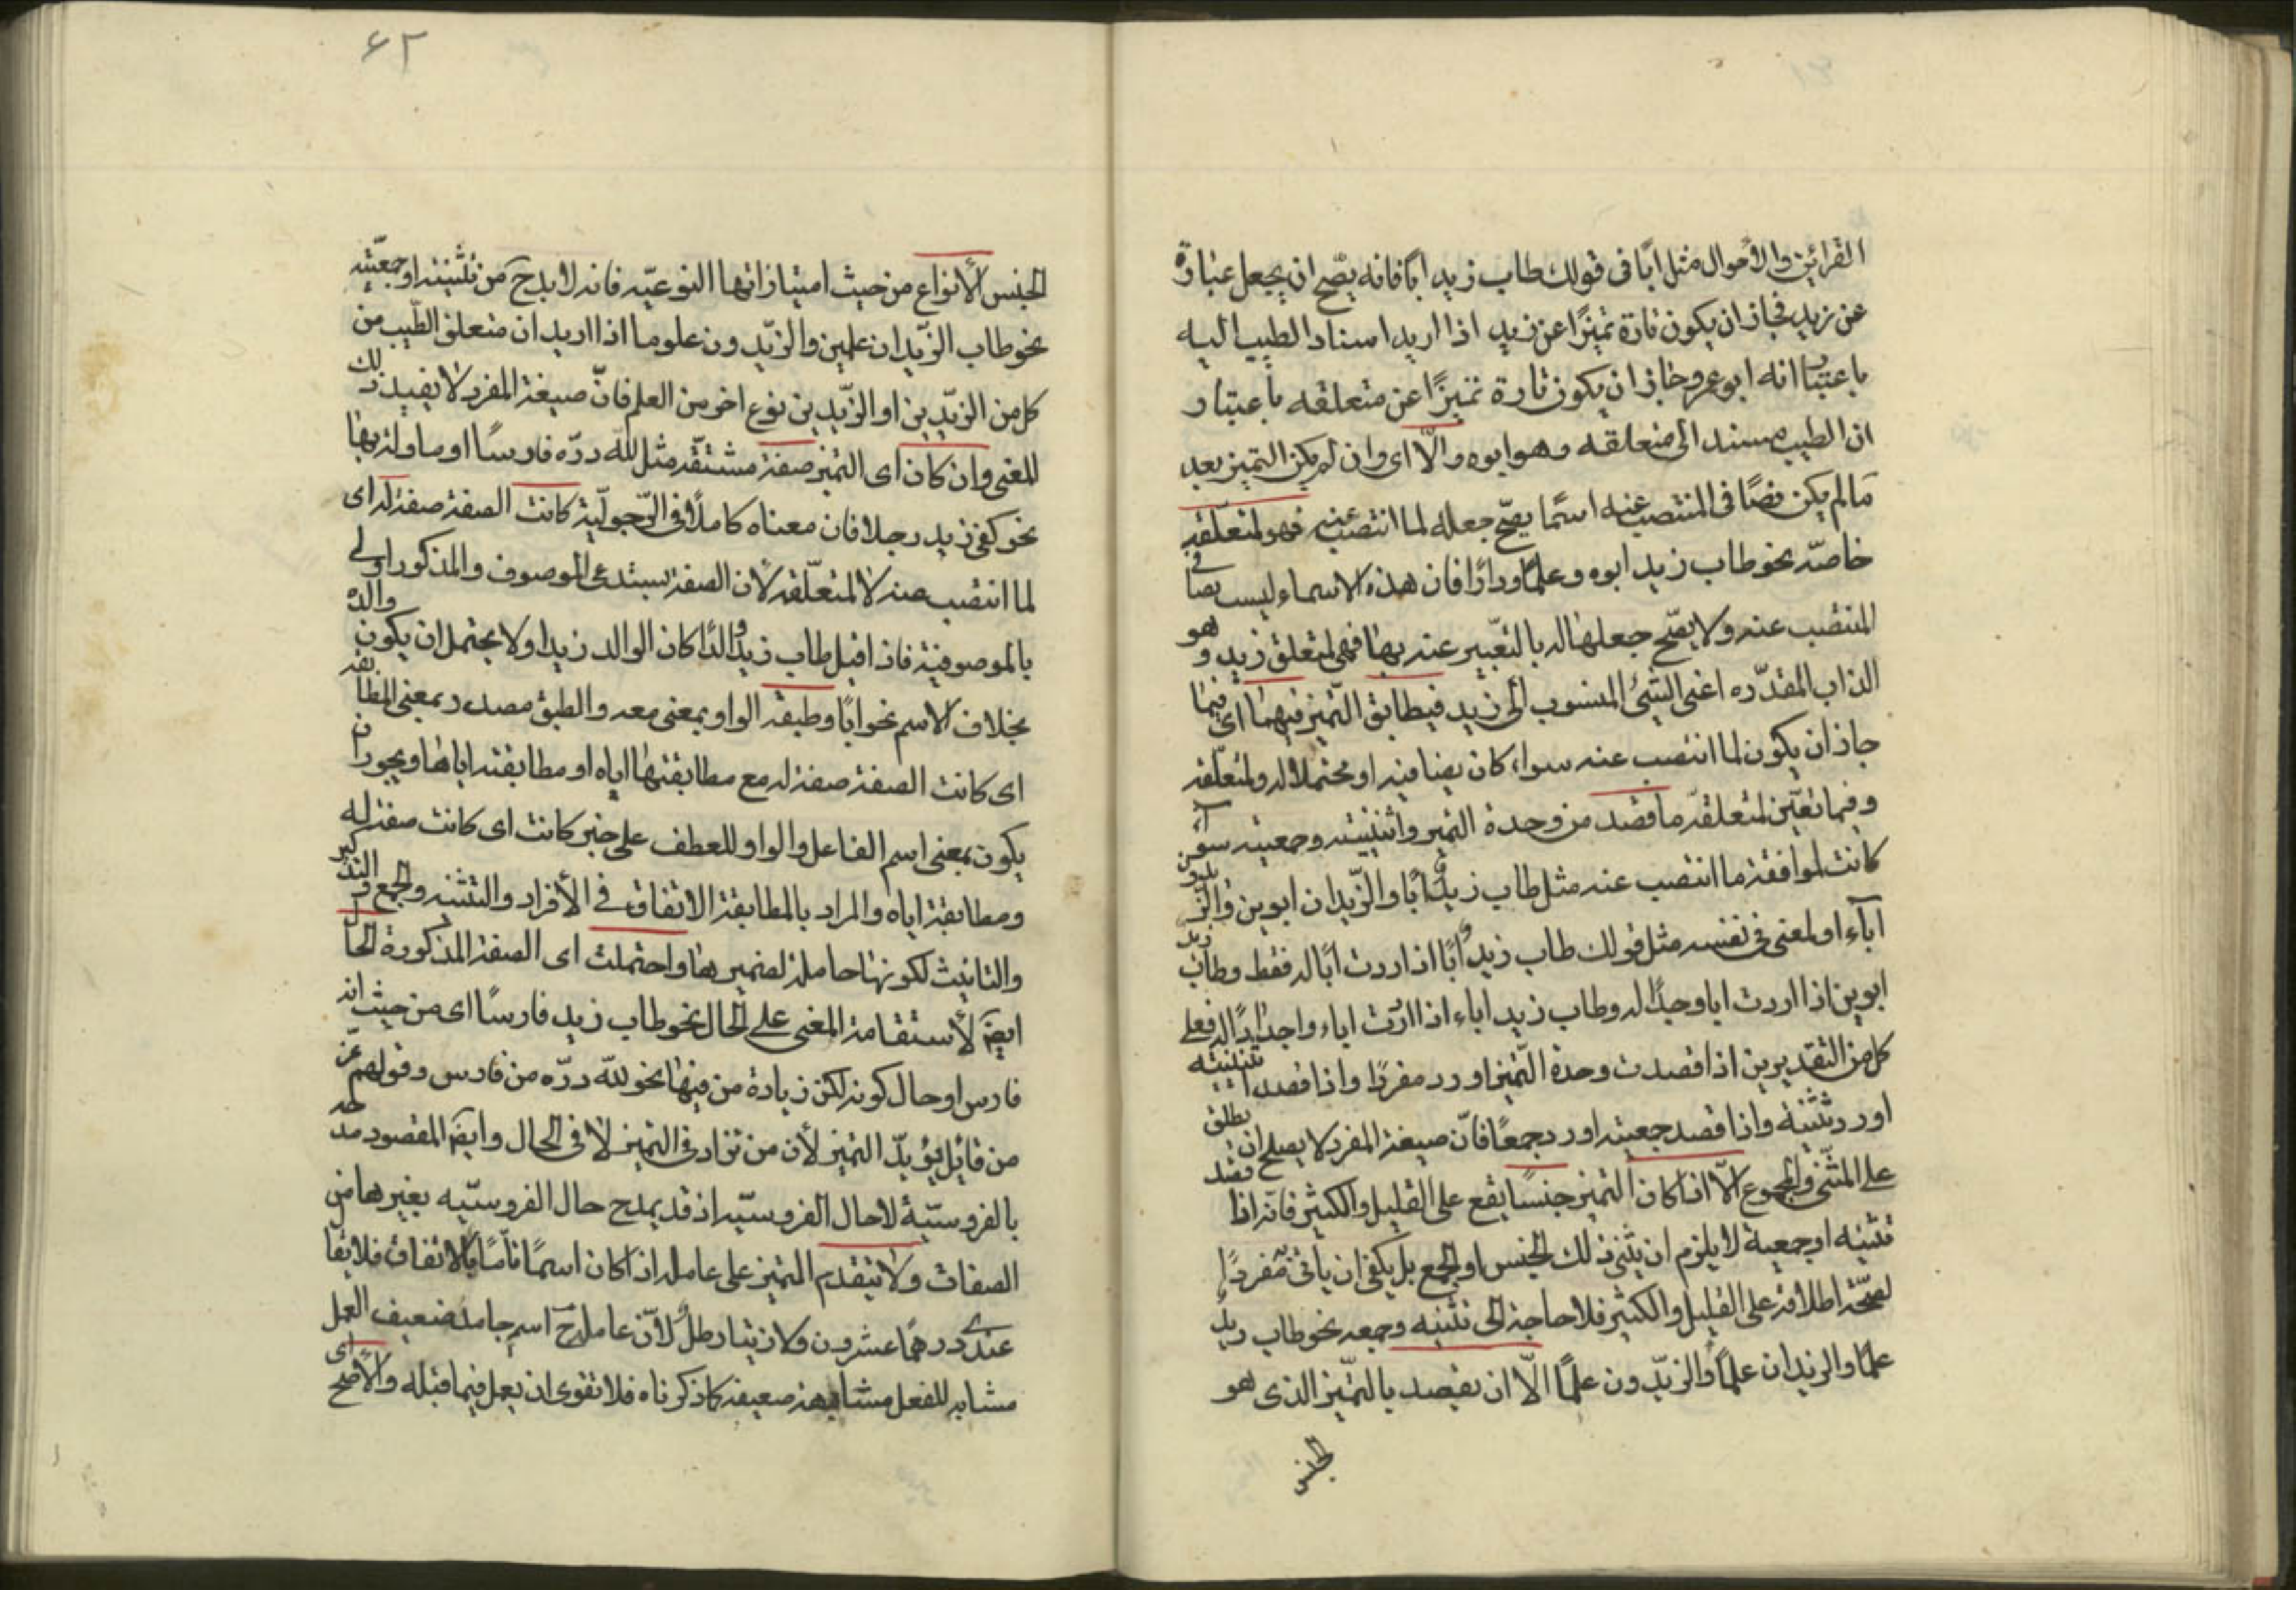 القرائن والأحوال مثل ابًا فى قولك طاب زيد ابًا فانه يصّح ان يجعل عبارة
عن زيد فجاز ان يكون تارة تميزًا عن زيد اذا اريد اسناد الطيب اليه
باعتبار انه ابو عمرو وجاز ان يكون تارة تميزًا عن متعلقه باعتبار
ان الطيب مسند الى متعلقه وهو ابوه والّا اى وان لم يكن التميز بعد
ما لم يكن نصًا فى المنتصب عنه اسمًا يصّح جعله لما انتصب عنه فهو لمتعلّقه
خاصّه نحو طاب زيد ابوه وعلمًا ودارًا فان هذه الاسماء ليست نصا فى
المنتصب عنه ولا يصّح جعلها له بالتعّبير عنه بها فهى لمتعلق زيد وهو
الذات المقدّره اعنى الشئ المنسوب الى زيد فيطابق التّميز فيهما اى فيما
جاز ان يكون لما انتصب عنه سواء كان نصا فيه او محتملا له ولمتعلّقه
وفيما تعيّن لمتعلقه ما قصد من وحدة التميز واثنينيته وجمعيته سواء
كانت لموافقة ما انتصب عنه مثل طاب زيد ابًا والزّيدان ابوين والزيدون
آباء او لمعنى فى نفسه مثل قولك طاب زيد ابًا اذا اردت ابًا له فقط وطاب زيد
ابوين اذا اردت ابا وجدًا له وطاب زيد اباء اذا اردت اباء واجدادًا له فعلى
كل من التقديرين اذا قصدت وحدة التّميز اورد مفردًا واذا قصد اثنينيته
اورد تثنيه واذا قصد جمعيته اورد جمعًا فانّ صيغة المفرد لا يصلح ان يطلق
على المثّنى والمجموع الّا اذا كان التميز جنسًا يقع على القليل والكثير فانه اذا قصد
تثنيه او جمعية لا يلزم ان يثنى ذلك الجنس او الجمع بل يكفى ان يأتى مفردًا
لصّحة اطلاقه على القليل والكثير فلا حاجة الى تثنيه وجمعه نحو طاب زيد
علمًا والزيدان علمًا والزيّدون علمًا الّا ان يقصد بالتّميز الذى هو
الجنس
۶۲
الجنس الأنواع من حيث امتيازاتها النوعيّه فانه لا بد ح من تثنيته او جمعيّته
نحو طاب الزّيدان علمين والزيّدون علوما اذا اريد ان متعلق الطّيب من
كل من الزيّدين او الزيّدين نوع اخر من العلم فانّ صيغة المفرد لا يفيد ذلك
المعنى وان كان اى التميز صفة مشتقّه مثل لله درّه فارسًا او ماولة بها
نحو كفى زيد رجلا فان معناه كاملًا فى الرّجوليّة كانت الصفة صفة له اى
لما انتصب عنه لا لمتعلّقه لأن الصفة يستدعى الموصوف والمذكور اولى
بالموصوفية فاذا قيل طاب زيد والدًا كان الوالد زيدا ولا يحتمل ان يكون والده
بخلاف الاسم نحو ابًا وطبقه الواو بمعنى مع والطبق مصدر بمعنى المطابقه
اى كانت الصفة صفة له مع مطابقتها اياه او مطابقته اياها ويجوز ان
يكون بمعنى اسم الفاعل والواو للعطف على خبر كانت اى كانت صفة له
ومطابقة اياه والمراد بالمطابقة الاتفاق فى الأفراد والتثنيه والجمع والتذكير
والتانيث لكونها حاملة لضميرها واحتملت اى الصفة المذكورة الحال
ايضَ لأستقامة المعنى على الحال نحو طاب زيد فارسًا اى من حيث انه
فارس او حال كونه لكن زيادة من فيها نحو لله درّه من فارس وقولهم عزّ
من قائل يؤيدّ التميز لأن من تزاد فى التميز لا فى الحال وايضَ المقصود مدحه
بالفروسيّة لا حال الفروسيّه اذ قد يمدح حال الفروسيّه بغيرها من
الصفات ولا يتقدم التميز على عامله اذا كان اسمًا تامًا بالاتفاق فلا يقال
عندى درهمًا عشرون ولا زيتا رطل لأنّ عامله ح اسم جامد ضعيف العمل
مشابه للفعل مشابهة ضعيفه كما ذكرناه فلا تقوى ان يعمل فيما قبله والأصح اى